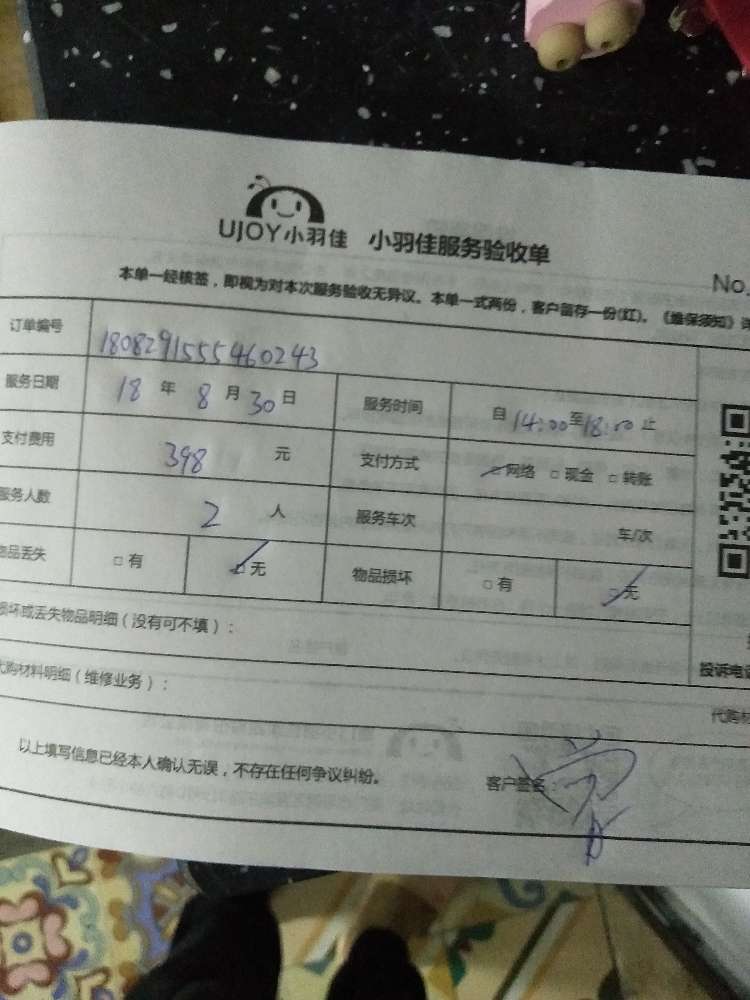 UJOY小羽佳 小羽佳服务验收单
No.
本单一经核签，即视为对本次服务验收无异议。本单一式两份，客户留存一份(红)。《维保须知》详
订单编号 1808291555460243
服务日期 18 年 8 月 30 日 服务时间 自 14:00 至 18:00 止
支付费用 398 元 支付方式 □ 网络 □ 现金 □ 转账
服务人数 2 人 服务车次 车/次
物品丢失 □ 有 □ 无 物品损坏 □ 有 □ 无
损坏或丢失物品明细（没有可不填）：
投诉电话
代购材料明细（维修业务）：
代购材
以上填写信息已经本人确认无误，不存在任何争议纠纷。 客户签名：